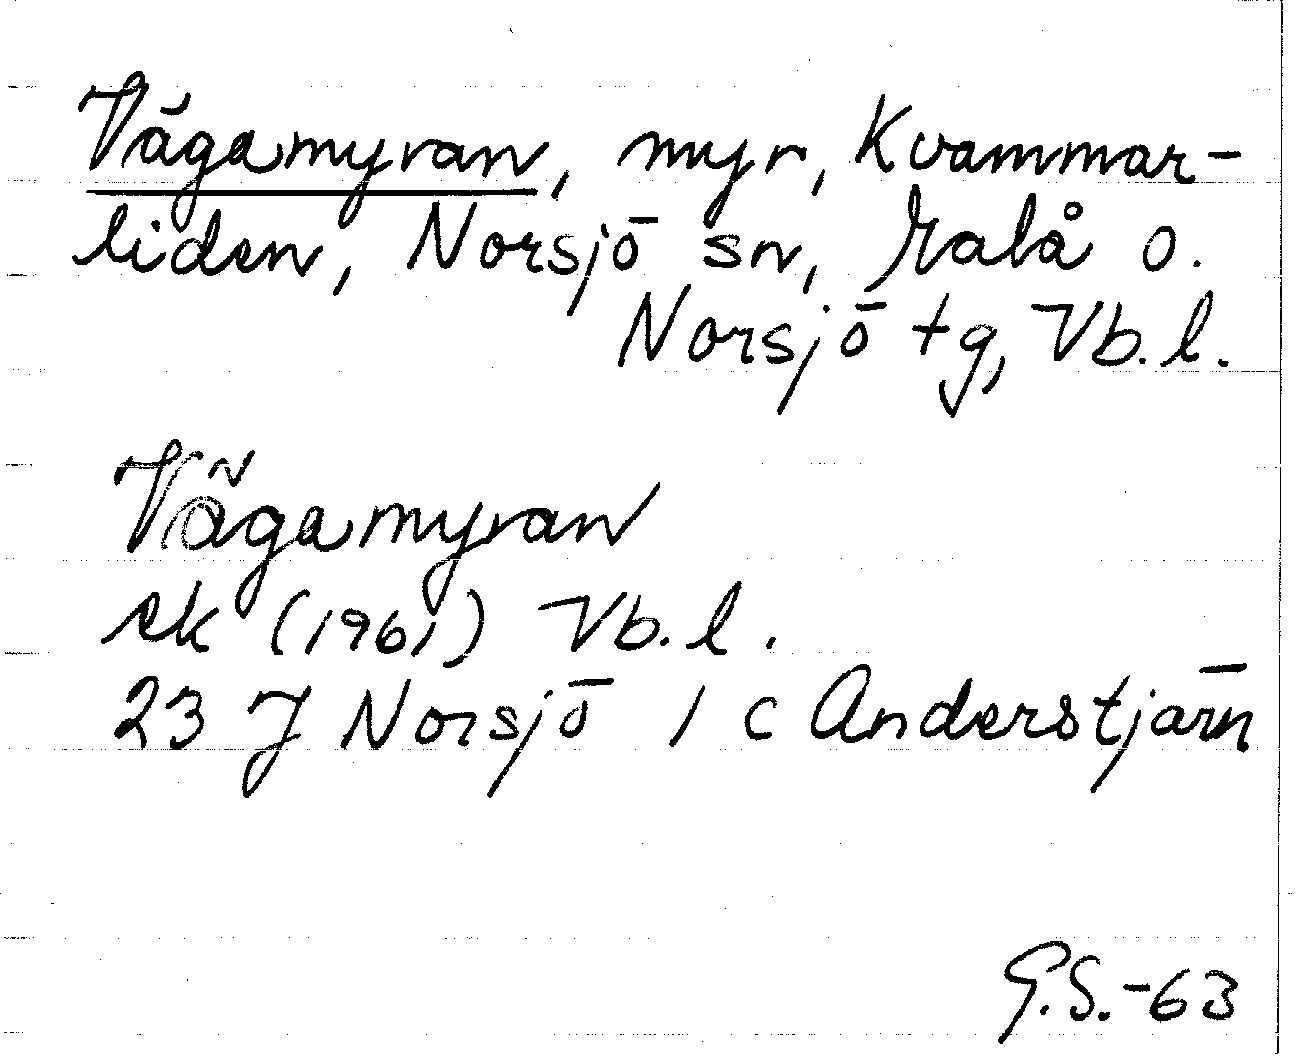 Vägamyran, myr, Kvammar-
liden, Norsjö sn, Malå o.
Norsjö tg, Vb. l.
Vägamyran
ek (1961) Vb. l.
23 J Norsjö 1 c Anderstjärn
G.S.-63